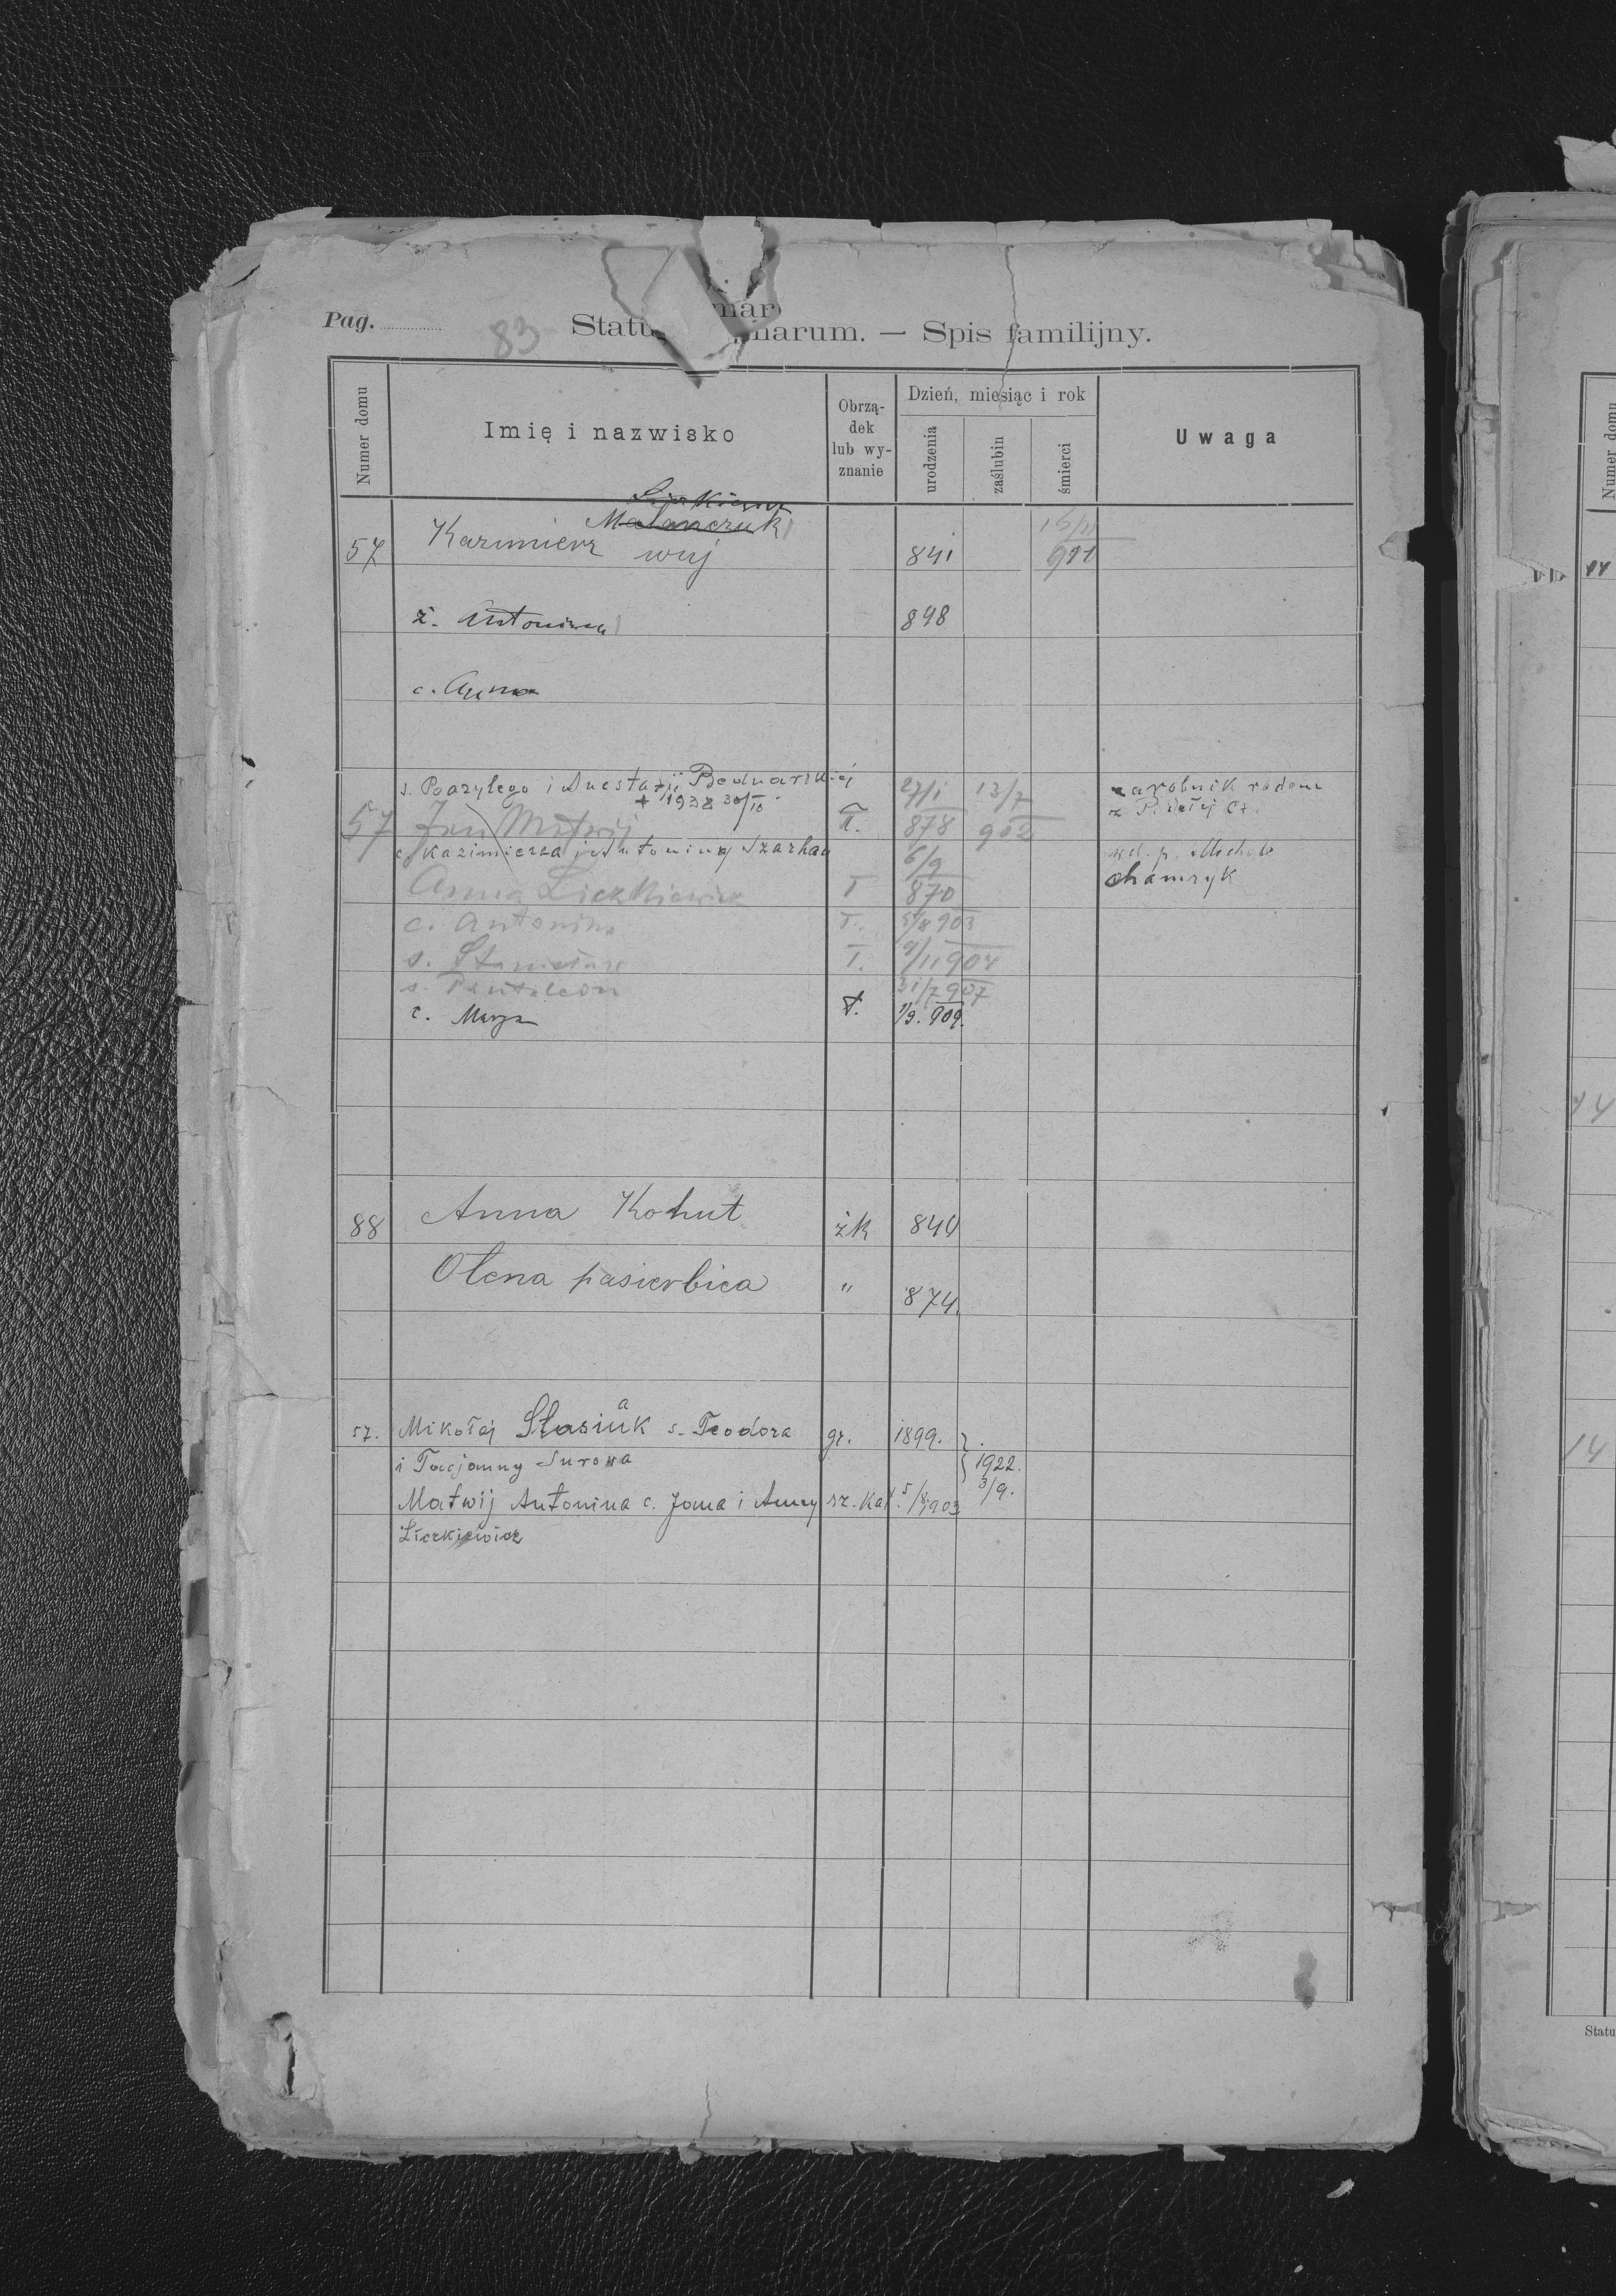 Pag.
83
Status marum. — Spis familijny.
Numer domu
Imię i nazwisko
Obrzą-
dek
lub wy-
znanie
Dzień, miesiąc i rok
urodzenia
zaślubin
śmierci
Uwaga
Malanczuk
57 Kazimierz wuj 841 15/11 911
ż. Antonina 848
c. Anna
s. Bazylego i Anestazji Bednarskiej 27/1 13/7 zarobnik rodem
+ 1938 30/10
57 Jan Matwij Ł. 878 902
c. Kazimierza i Antoniny Szarhan 6/9 wd. p.
Anna Liczkiewicz Ł 870
c. Antonina Ł. 5/8 903
s. Stanisław Ł. 9/11 904
s. Pantaleon 31/7 907
c. Marya Ł. 1/9. 909.
88 Anna Kohut żk 844
Ołena pasierbica " 874
57. Mikołaj Stasiuk a s. Teodora gr. 1899.
i Tacjanny Surowa 1922.
3/9.
Matwij Antonina c. Jana i Anny rz. kat. 5/8 1903
Liczkiewicz
Numer domu
14
Statu